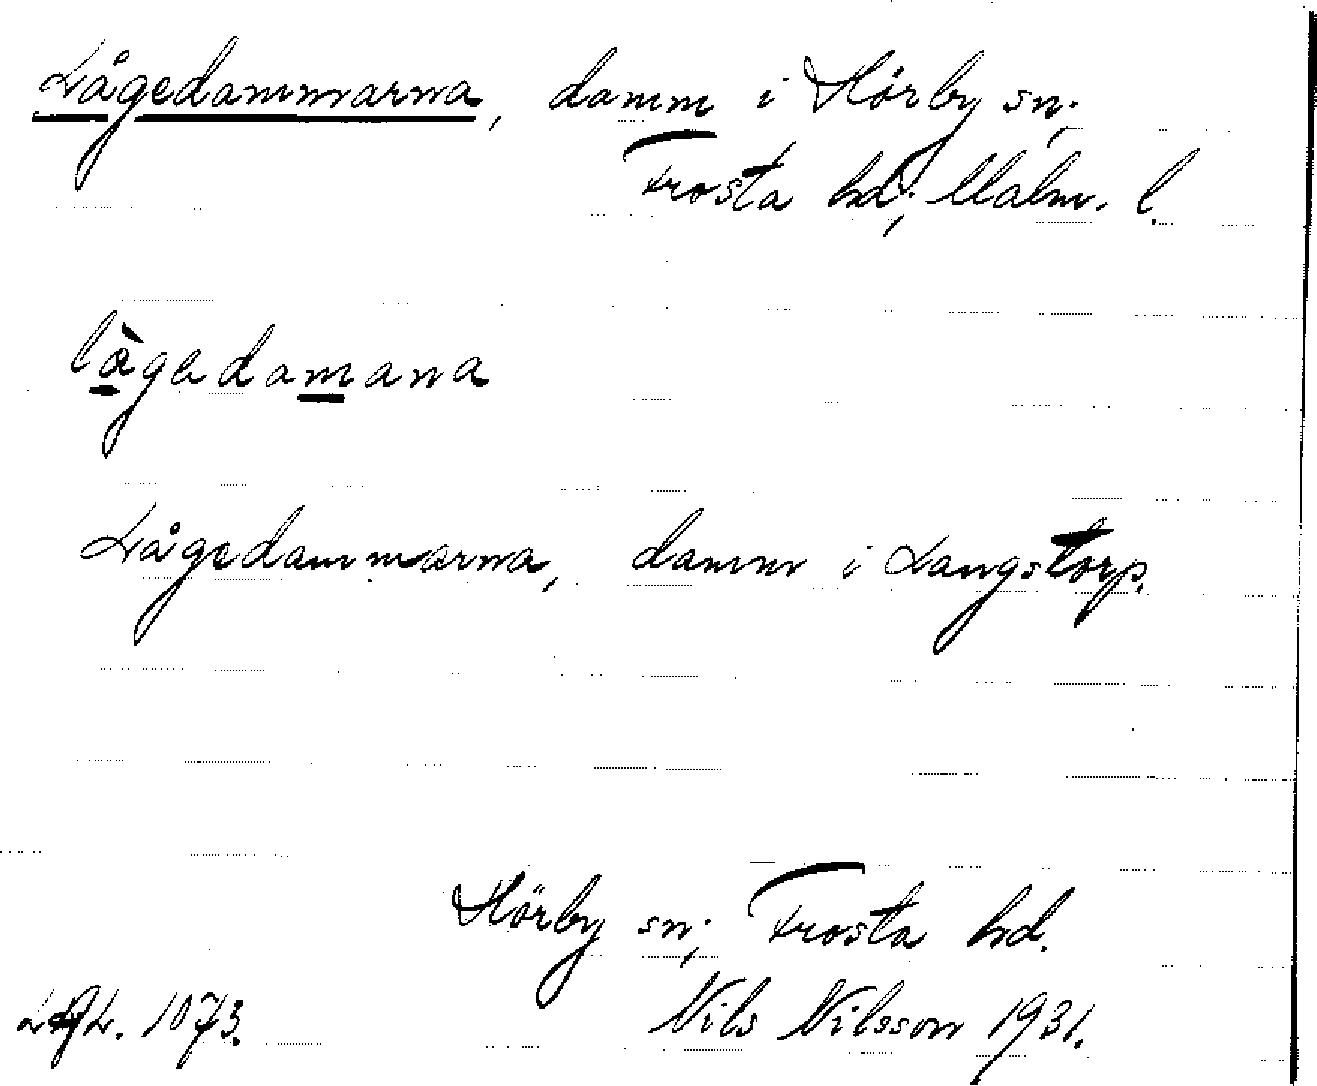 Lågedammarna, damm i Hörby sn;
Frosta hd; Malm. l.
lågedamana
Lågedammarna, damm i Langstorp.
Hörby sn; Frosta hd.
1073. Nils Nilsson 1931.